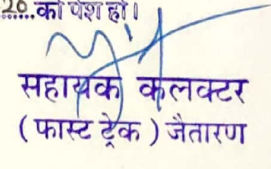 20.....को पेश हो।
सहायक कलक्टर
( फास्ट ट्रेक ) जैतारण